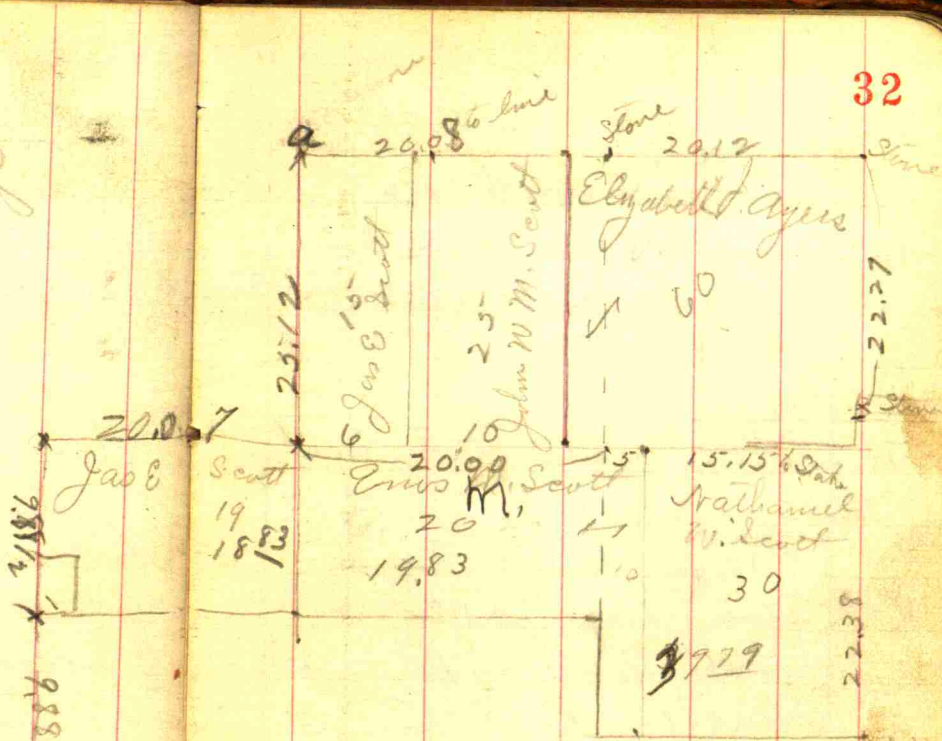 32
a
20.08 to line
Stone
20.12
Stone
Elizabeth J. Ayers
60
22.27
Stone
25.12
15
Jas E Scott
25
John W M. Scott
6
10
20.00
5
15.15 to Stake
20.07
Jas E Scott
19
18.83
Enos M. Scott
20
19.83
Nathaniel
W. Scott
30
2979
22.38
9.88